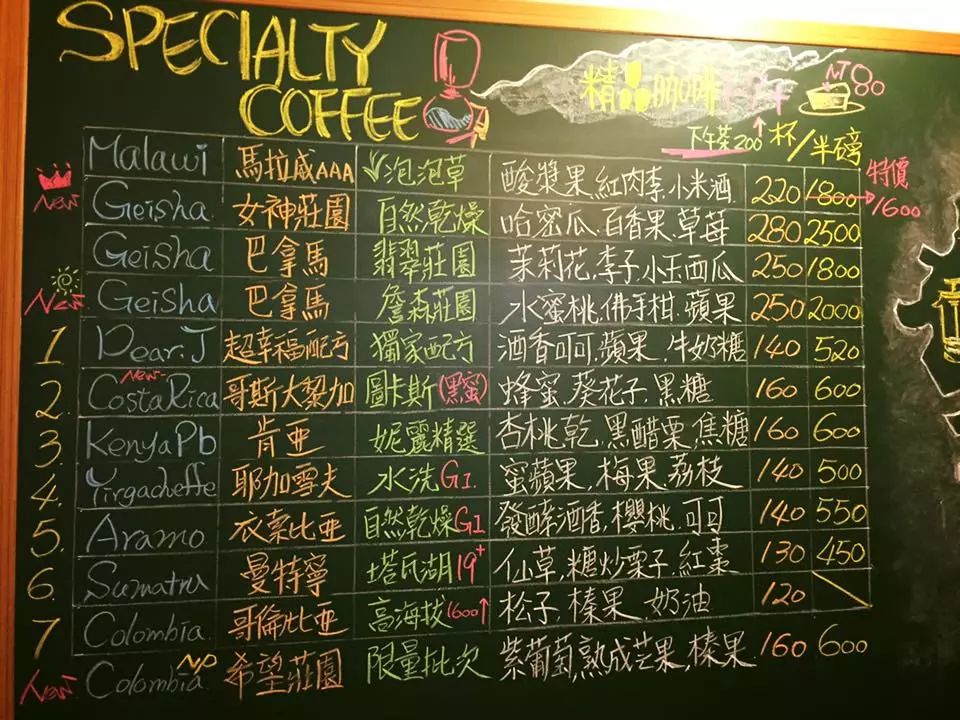 SPECIALTY
COFFEE
精品咖啡
NT80
下午茶200↑ 杯/半磅
Malawi 馬拉威AAA ✓泡泡草 酸漿果.紅肉李.小米酒 220 1800→1600 特價
New Geisha 女神莊園 自然乾燥 哈密瓜.百香果.草莓 280 2500
Geisha 巴拿馬 翡翠莊園 茉莉花.李子.小玉西瓜 250 1800
New Geisha 巴拿馬 詹森莊園 水蜜桃.佛手柑.蘋果 250 2000
1 Dear.J 超幸福配方 獨家配方 酒香可可.蘋果.牛奶糖 140 520
2. New Costa Rica 哥斯大黎加 圖卡斯(黑蜜) 蜂蜜.葵花子.黑糖 160 600
3. Kenya Pb 肯亞 妮麗精選 杏桃乾.黑醋栗.焦糖 160 600
4. Yirgacheffe 耶加雪夫 水洗G1. 蜜蘋果.梅果.荔枝 140 500
5. Aramo 衣索比亞 自然乾燥G1 發酵酒香.櫻桃.可可 140 550
6. Sumatra 曼特寧 塔瓦湖19+ 仙草.糖炒栗子.紅棗 130 450
7 Colombia 哥倫比亞 高海拔1600↑ 松子.榛果.奶油 120
New Colombia NP 希望莊園 限量批次 紫葡萄.熟成芒果.榛果 160 600